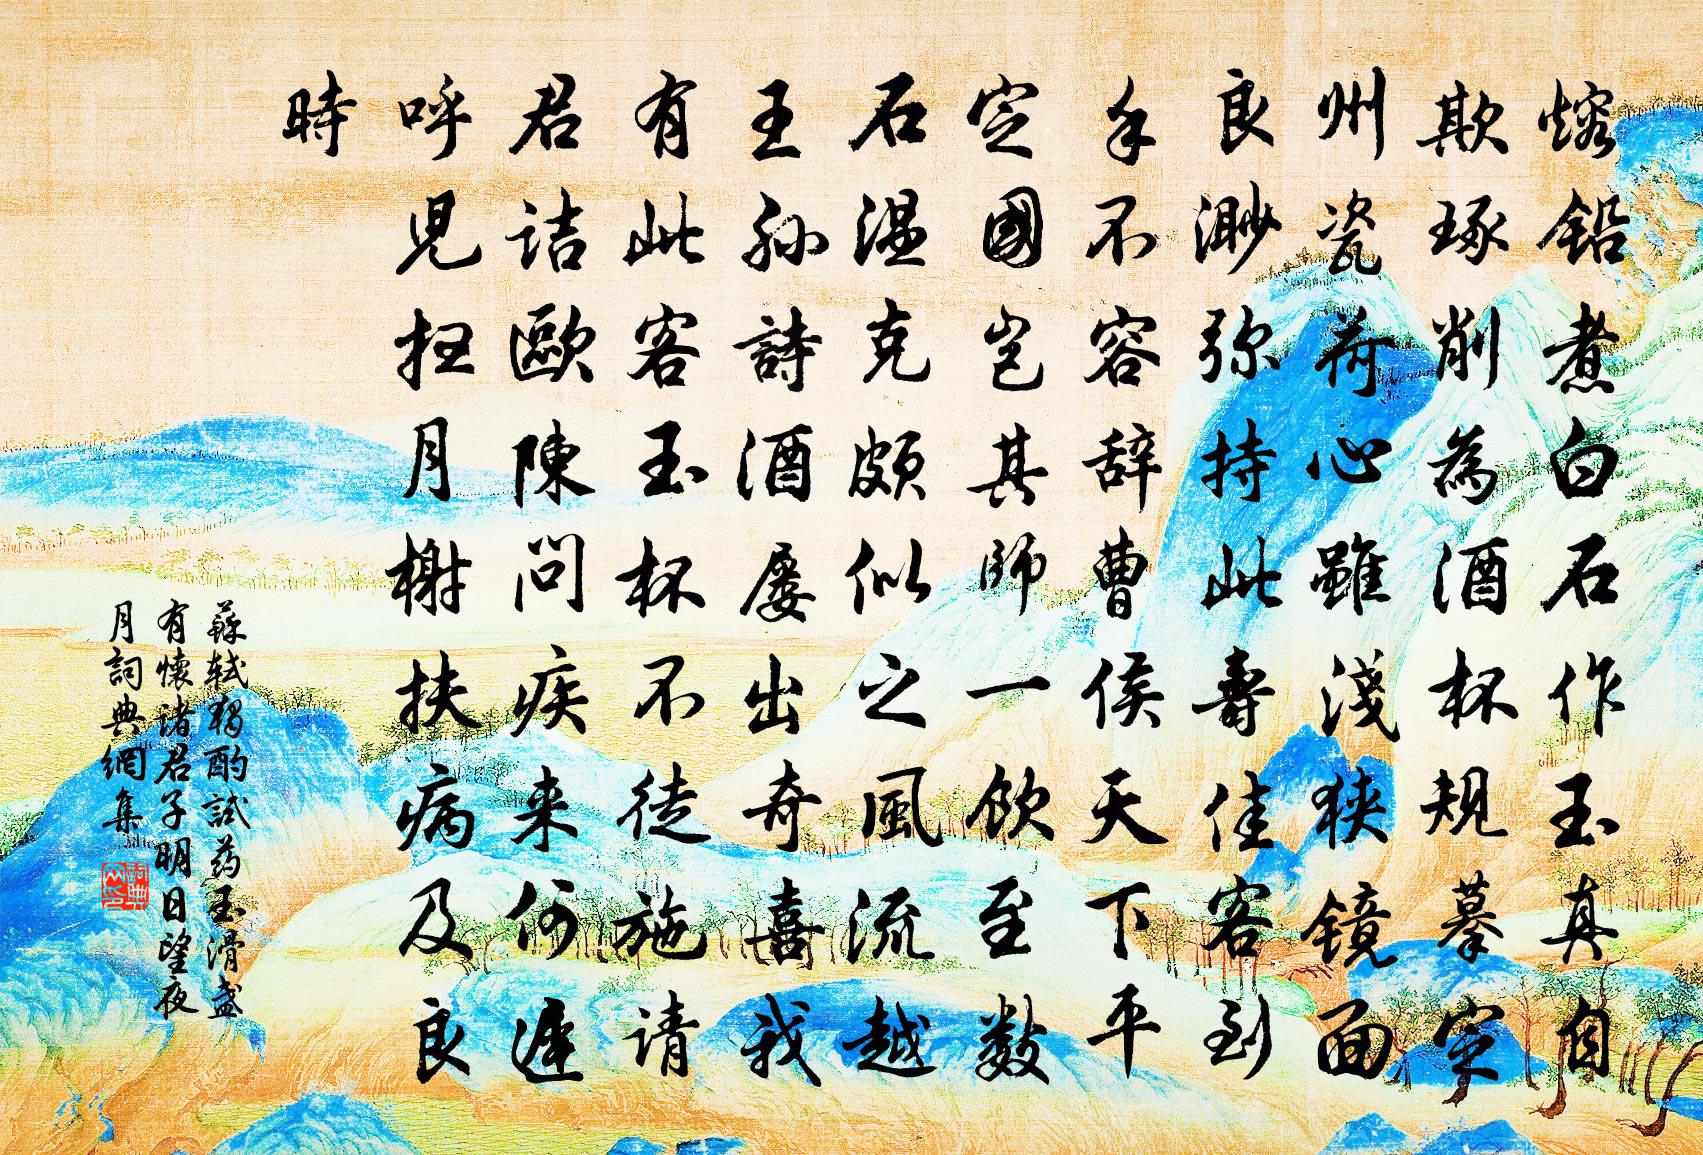 熔鉛煮白石作玉真自
欺琢削為酒杯規摹定
州瓷荷心雖淺狹鏡面
良渺弥持此壽佳客到
手不容辞曹侯天下平
定國豈其師一飲至數
石温克頗似之風流越
王孙詩酒屢出奇喜我
有此客玉杯不徒施请
君詰歐陳問疾来何遲
呼児扫月榭扶病及良
時
蘇轼獨酌試药玉滑盏
有懷諸君子明日望夜
月詞典網集